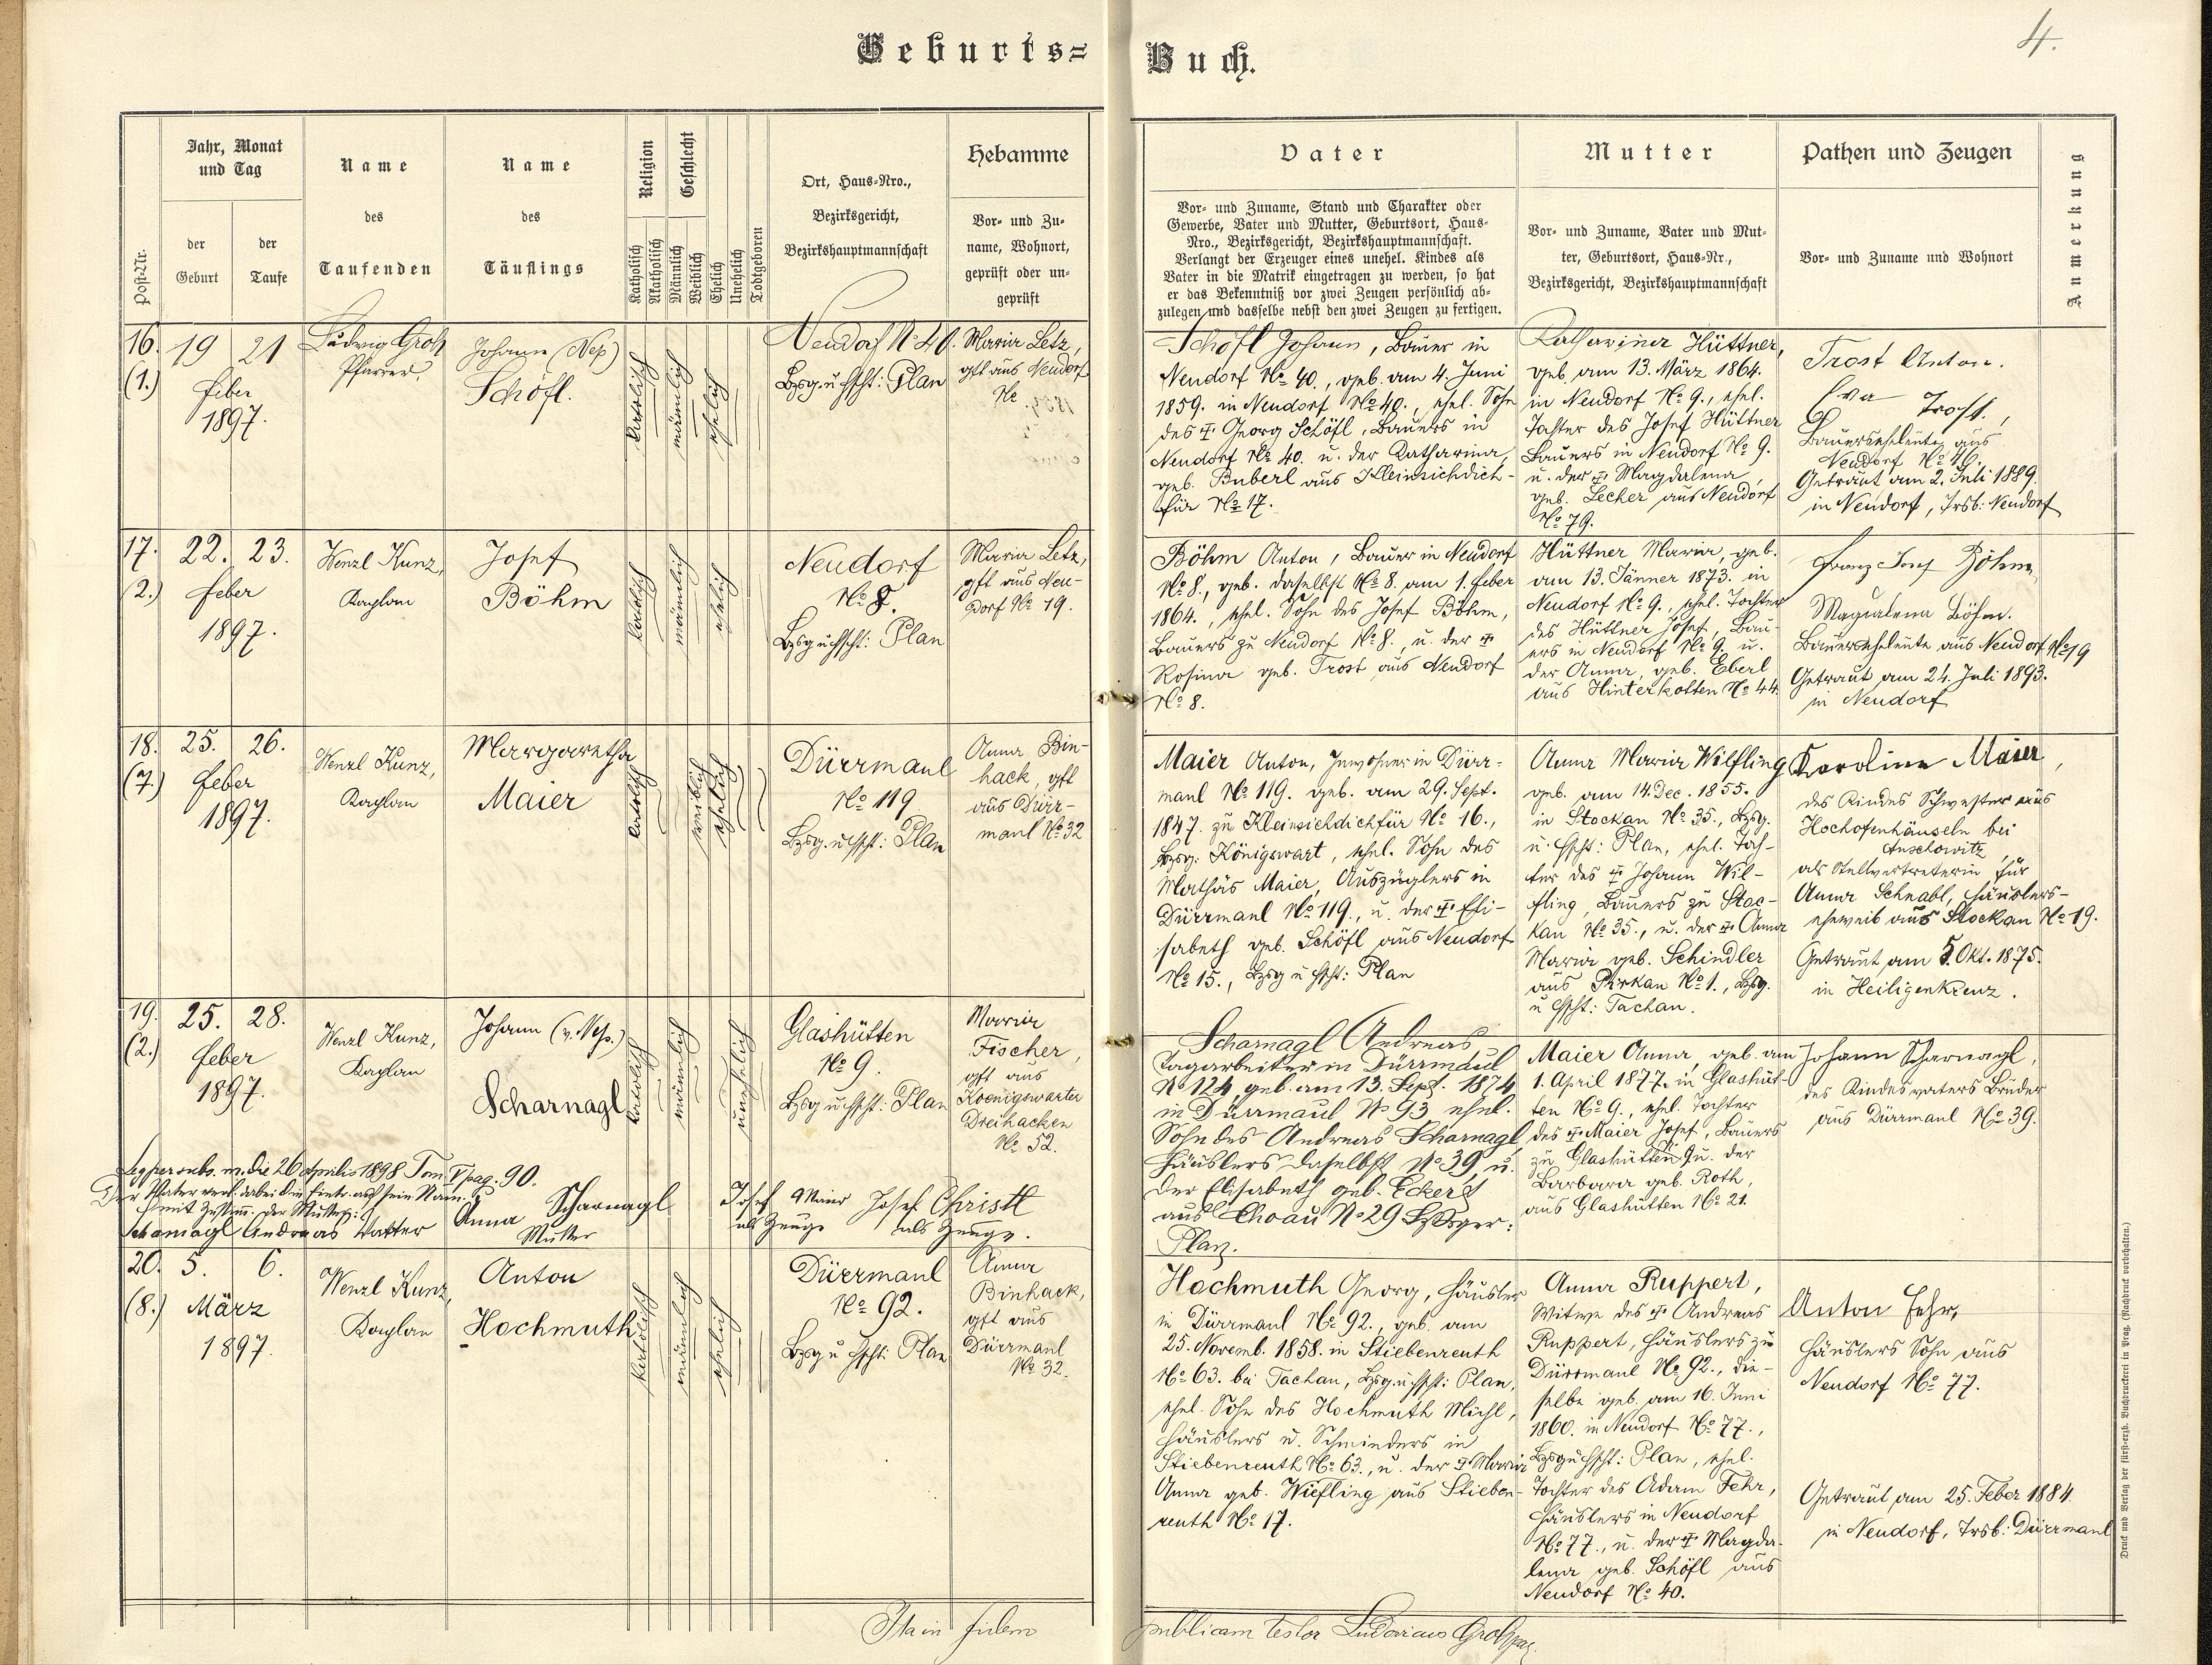 4.
Geburts=
Buch.
Post-Nr.
Jahr, Monat
und Tag
der
Geburt
der
Taufe
Name
des
Taufenden
Name
des
Täuflings
Religion
Katholisch
Akatholisch
Geschlecht
Männlich
Weiblich
Ehelich
Unehelich
Todtgeboren
Ort, Haus=Nro.,
Bezirksgericht,
Bezirkshauptmannschaft
Hebamme
Vor= und Zu=
name, Wohnort,
geprüft oder un=
geprüft
Vater
Vor= und Zuname, Stand und Charakter oder
Gewerbe, Vater und Mutter, Geburtsort, Haus=
Nro., Bezirksgericht, Bezirkshauptmannschaft.
Verlangt der Erzeuger eines unehel. Kindes als
Vater in die Matrik eingetragen zu werden, so hat
er das Bekenntniß vor zwei Zeugen persönlich ab=
zulegen und dasselbe nebst den zwei Zeugen zu fertigen.
Mutter
Vor= und Zuname, Vater und Mut=
ter, Geburtsort, Haus=Nr.,
Bezirksgericht, Bezirkshauptmannschaft
Pathen und Zeugen
Vor= und Zuname und Wohnort
Anmerkung
16. 19 21
(1.) feber
1897.
Ludwig Groh
Pfarrer.
Johann (Nep)
Schöfl.
katholisch
männlich
ehelich
Neudorf No 40.
Bzsg. u. Hpscht: Plan
Maria Letz,
gft aus Neudorf
No
Schöfl Johann, Bauer in
Neudorf No 40., geb. am 4. Juni
1859. in Neudorf No 40., ehel. Sohn
des † Georg Schöfl, Bauers in
Neudorf No 40. u. der Katharina,
geb. Buberl aus Kleinsichdich-
für No 17.
Katharina Hüttner,
geb. am 13. März 1864.
in Neudorf No 9., ehel.
Tochter des Josef Hüttner
Bauers in Neudorf No 9.
u. der † Magdalena
geb. Lecher aus Neudorf
No 79.
Trost Anton.
Eva Trost,
Bauerseheleute aus
Neudorf No 46.
Getraut am 2. Juli 1889.
in Neudorf, Trsb: Neudorf
17. 22. 23.
(2.) feber
1897.
Wenzl Kunz,
Kaplan
Josef
Böhm
katholisch
männlich
ehelich
Neudorf
No 8.
Bzsg u Hpscht: Plan
Maria Letz,
gft aus Neu-
dorf No 19.
Böhm Anton, Bauer in Neudorf
No 8., geb. daselbst No 8. am 1. feber
1864., ehel. Sohn des Josef Böhm,
Bauers zu Neudorf No 8., u. der †
Rosina geb. Trost aus Neudorf
No 8.
Hüttner Maria, geb.
am 13. Jänner 1873. in
Neudorf No 9., ehel. Tochter
des Hüttner Josef, Bau-
ers in Neudorf No 9. u.
der Anna, geb. Eberl
aus Hinterkotten No 44.
Franz Josef Böhm,
Magdalena Böhm.
Bauerseheleute aus Neudorf No 19
Getraut am 24. Juli 1893.
in Neudorf
18. 25. 26.
(7.) feber
1897.
Wenzl Kunz,
Kaplan
Margaretha
Maier
katholisch
weiblich
ehelich
Dürrmaul
No 119.
Bzsg. u. Hpscht: Plan
Anna Bin-
hack, gft
aus Dürr-
maul No 32
Maier Anton, Inwohner in Dürr-
maul No 119. geb. am 29. Sept.
1847. zu Kleinsichdichfür No 16.,
Bzsg: Königswart, ehel. Sohn des
Mathäs Maier, Auszüglers in
Dürrmaul No 119., u. der † Eli-
sabeth geb. Schöfl aus Neudorf
No 15., Bzsg u Hpscht: Plan
Anna Maria Wilfling
geb. am 14. Dec. 1855.
in Stockau No 35., Bzsg.
u. Hpscht: Plan, ehel. Toch-
ter des † Johann Wil-
fling, Bauers zu Stoc-
kau No 35., u. der † Anna
Maria geb. Schindler
aus Pirkau No 1., Bzsg.
u Hpscht: Tachau.
Karoline Maier,
des Kindes Schwester aus
Hochofenhäuseln bei
Auschowitz,
als Stellvertreterin für
Anna Schnabl, Häuslers-
eheweib aus Stockau No 19.
Getraut am 5. Okt. 1875.
in Heiligenkreuz.
19. 25. 28.
(2.) feber
1897.
Wenzl Kunz,
Kaplan
Johann (v. Nep.)
Scharnagl
katholisch
männlich
unehelich
Glashütten
No 9.
Bzsg u Hpscht: Plan
Maria
Fischer,
gft aus
Koenigswarter
Dreihacken
No 52.
Scharnagl Andreas
Tagarbeiter in Dürrmaul
No 124 geb. am 13. Sept. 1874
in Dürrmaul No 93 ehel.
Sohn des Andreas Scharnagl,
Häuslers daselbst No 39 u.
der Elisabeth geb. Eckert
aus Choau No 29 Bzsger:
Plan.
Maier Anna, geb. am
1. April 1877. in Glashüt-
ten No 9., ehel. Tochter
des † Maier Josef, Bauers
zu Glashütten 9 u. der
Barbara geb. Roth,
aus Glashütten No 21.
Johann Scharnagl,
des Kindesvaters Bruder
aus Dürrmaul No 39.
Leg per subs. m. die 26 Aprilis 1898 Tom V pag. 90.
Der Vater verl. dabei die Eintr. auf sein Nam.
mit Zustim: der Mutter:
Scharnagl Andreas Vatter
Anna Scharnagl
Mutter
Josef Maier
als Zeuge
Josef Christl
als Zeuge.
20. 5. 6.
(8.) März
1897.
Wenzl Kunz,
Kaplan
Anton
Hochmuth
katholisch
männlich
ehelich
Dürrmaul
No 92.
Bzsg u Hpscht: Plan
Anna
Binhack,
gft aus
Dürrmaul
No 32.
Hochmuth Georg, Häusler
in Dürrmaul No 92., geb. am
25. Novemb. 1858. in Stiebenreuth
No 63. bei Tachau, Bzsg. u. Hpscht: Plan,
ehel. Sohn des Hochmuth Michl,
Häuslers u. Schneiders in
Stiebenreuth No 63., u. der † Maria
Anna geb. Wiefling aus Stieben-
reuth No 17.
Anna Ruppert,
Witwe des † Andreas
Ruppert, Häuslers zu
Dürrmaul No 92., die-
selbe geb. am 16. Juni
1860. in Neudorf No 77.,
Bzsg u Hpscht: Plan, ehel.
Tochter des Adam Fehr,
Häuslers in Neudorf
No 77., u. der † Magda-
lena geb. Schöfl aus
Neudorf No 40.
Anton Fehr,
Häuslers Sohn aus
Neudorf No 77.
Getraut am 25. Feber 1884
in Neudorf, Trsb: Dürrmaul
Ita in fidem
publicam testor Ludovicus Groh
Druck und Verlag der fürst=erzb. Buchdruckerei in Prag. (Nachdruck vorbehalten.)